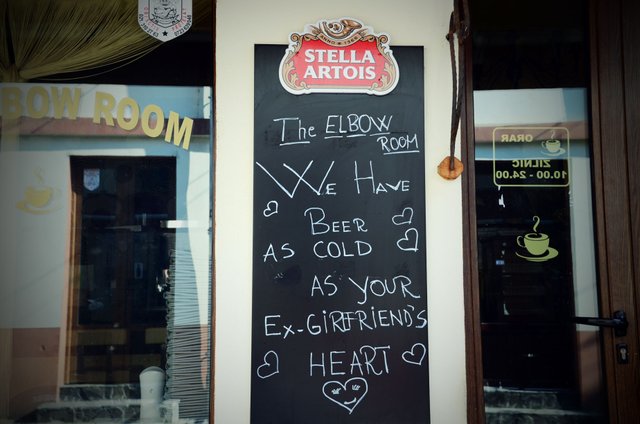 STELLA
ARTOIS
The ELBOW
ROOM
WE HAVE
BEER
AS COLD
AS YOUR
EX-GIRLFRIEND'S
HEART
BOW ROOM
ORAR
ZILNIC
10.00 - 24.00